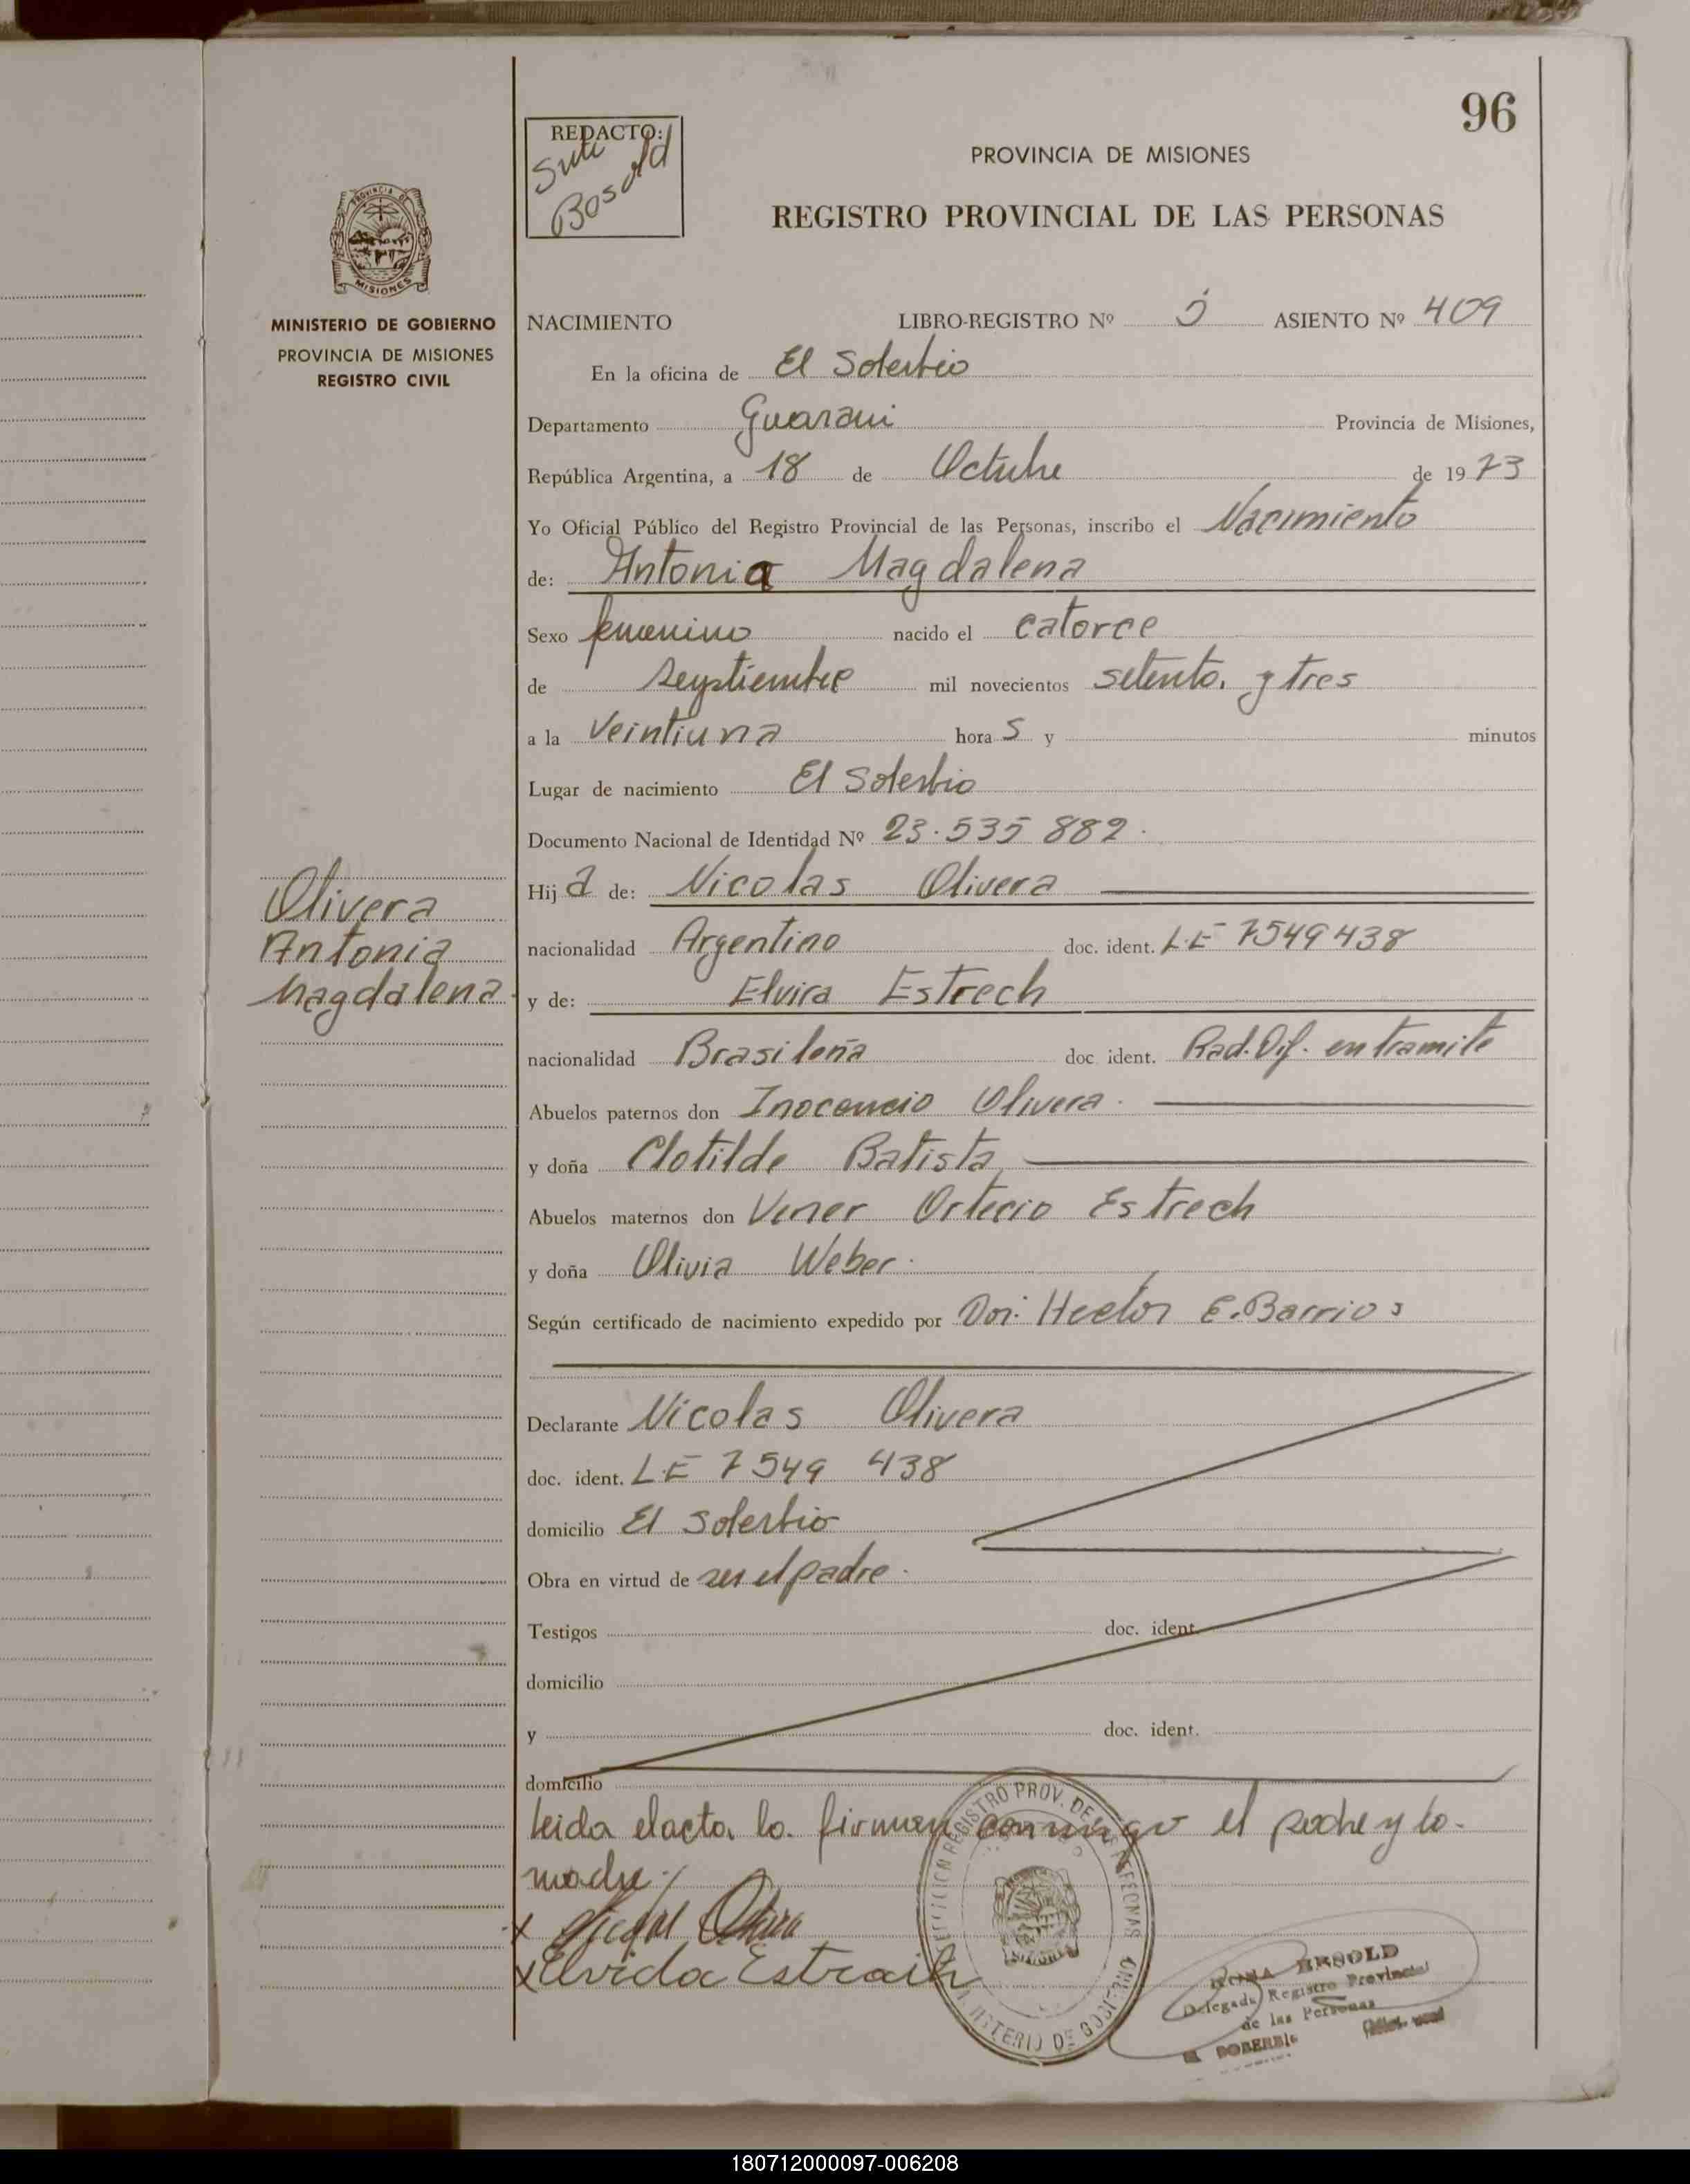 96
REDACTO:
PROVINCIA DE MISIONES
REGISTRO PROVINCIAL DE LAS PERSONAS
PROVINCIA DE
MISIONES
MINISTERIO DE GOBIERNO
PROVINCIA DE MISIONES
REGISTRO CIVIL
NACIMIENTO LIBRO-REGISTRO Nº ASIENTO Nº 409
En la oficina de El Soberbio
Departamento Guarani Provincia de Misiones,
República Argentina, a 18 de Octubre de 1973
Yo Oficial Público del Registro Provincial de las Personas, inscribo el Nacimiento
de: Antonia Magdalena
Sexo femenino nacido el catorce
de Septiembre mil novecientos setenta y tres
a la Veintiuna horas y minutos
Lugar de nacimiento El Soberbio
Documento Nacional de Identidad Nº 23.535 882.
Olivera
Antonia
Magdalena
Hija de: Nicolas Olivera
nacionalidad Argentino doc. ident. L.E 7549438
y de: Elvira Estrech
nacionalidad Brasileña doc ident. Rad. Dif. en tramite
Abuelos paternos don Inocencio Olivera.
y doña Clotilde Batista
Abuelos maternos don Vener Ortecio Estrech
y doña Olivia Weber.
Según certificado de nacimiento expedido por Hector E. Barrios
Declarante Nicolas Olivera
doc. ident. L.E 7549 438
domicilio El Soberbio
Obra en virtud de ser el padre.
Testigos doc. ident.
domicilio
y doc. ident.
domicilio
leida el acta la firman conmigo el padre y la
madre
x Olivera
x Elvida Estraich
REGISTRO PROV. DE LAS PERSONAS
MINISTERIO DE GOBIERNO
Delegada Registro Provincial
de las Personas
EL SOBERBIO
180712000097-006208